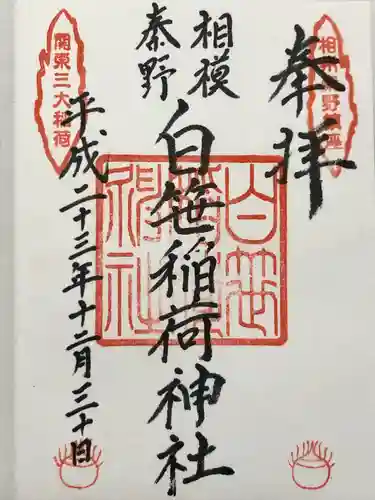 奉拝
相模
秦野
白笹稲荷神社
平成二十三年十二月三十日
関東三大稲荷
白笹
稲荷
神社